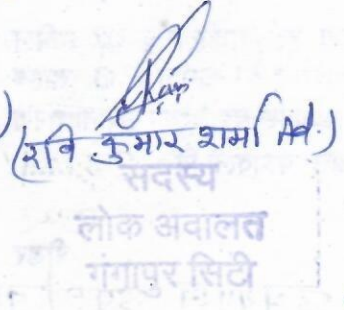 (रवि कुमार शर्मा Ad.)
सदस्य
लोक अदालत
गंगापुर सिटी